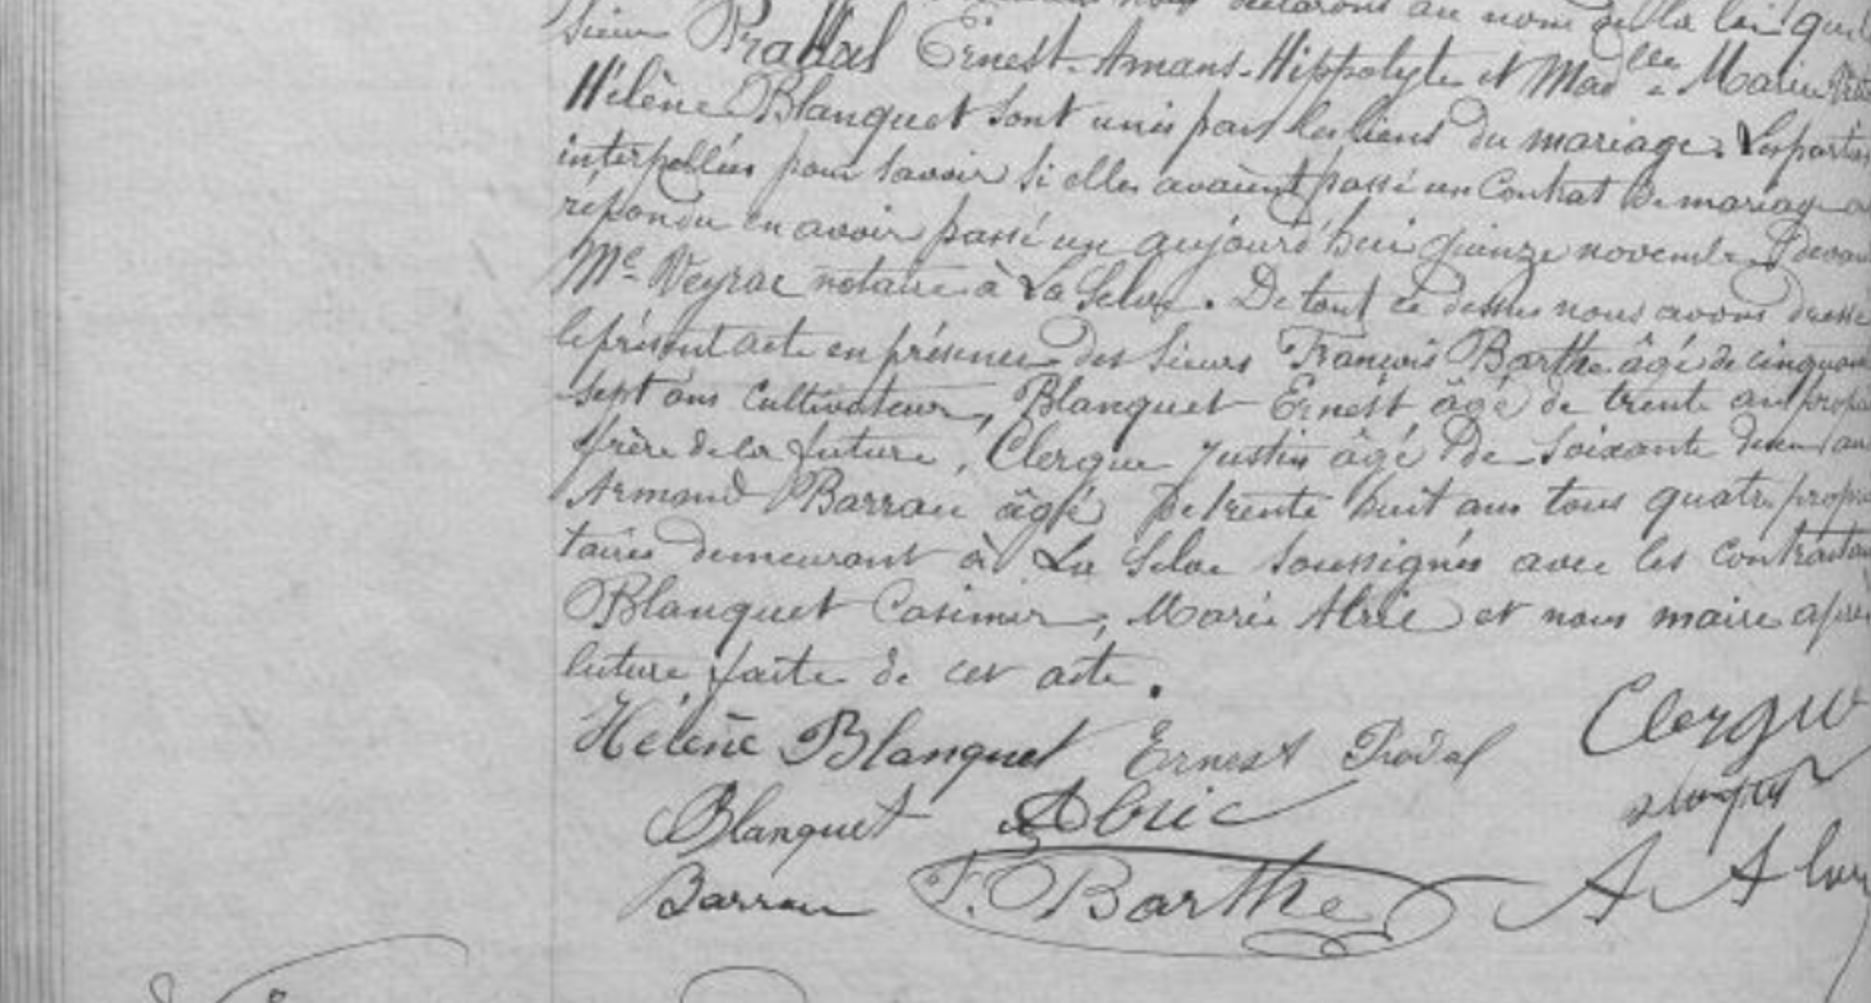 nous déclarons au nom de la loi que
Sieur Pradal Ernest-Amans-Hippolyte et Mad^elle Marie
Hélène Blanquet sont unis par les liens du mariage. Les parties
interpellées pour savoir si elles avaient passé un Contrat de mariage a
répondu en avoir passé un aujourd'hui quinze novembre devan
M^e Veyrac notaire à La Selve. De tout ce dessus nous avons dressé
le présent acte en présence des sieurs François Barthe âgé de cinquan
sept ans cultivateur, Blanquet Ernest âgé de trente ans prop
frère de la future, Clergue Justin âgé de soixante deux an
Armand Barrau âgé de trente huit ans tous quatre propri
taires demeurant à La Selve soussignés avec les contractan
Blanquet Casimir, Marie Alric et nous maire aprè
lecture faite de cet acte.
Hélène Blanquet Ernest Pradal Clergue
Blanquet Alric
Barrau F. Barthe A